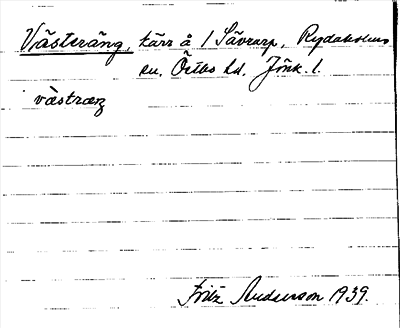 Västeräng, kärr å 1 Sävrarp, Rydaholms
sn. Östbo hd. Jönk. l.
västræŋ
Fritz Andersson 1939.